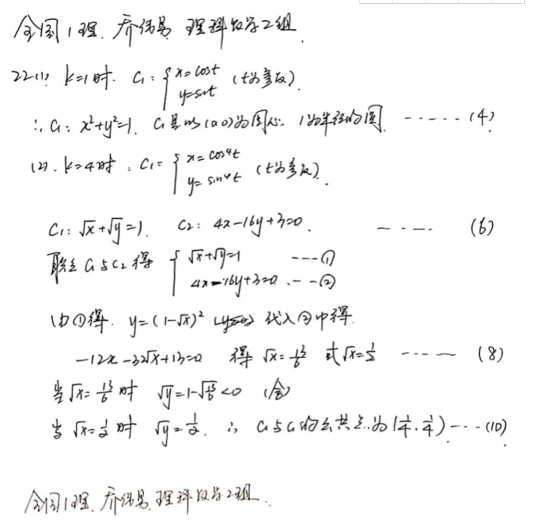 全国1理. 乔伟易 理科数学2组.
22(1) k=1时. C₁: { x=cost y=sint (t为参数).
∴ C₁: x²+y²=1. C₁是以(0,0)为圆心 1为半径的圆. ····· (4)
(2). k=4时, C₁= { x=cos⁴t y=sin⁴t (t为参数).
C₁: √x+√y=1. C₂: 4x-16y+3=0. - - - · (6)
联立C₁与C₂得 { √x+√y=1 ---① 4x-16y+3=0 ·--②
由①得. y=(1-√x)² 代入②中得.
-12x-32√x+13=0 得 √x=13/6 或√x=1/2 ---- (8)
当√x=13/6时 √y=1-√13/6<0 (舍)
当√x=1/2时 √y=1/2. ∴ C₁与C₂的公共点为(1/4,1/4)----(10)
全国1理. 乔伟易. 理科数学2组.